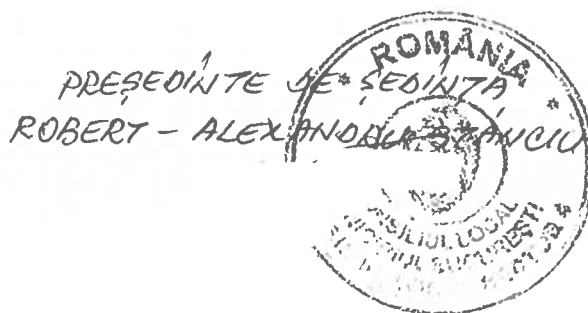 PREȘEDINTE DE ȘEDINȚĂ
ROBERT - ALEXANDRU STĂNCIU
ROMÂNIA
CONSILIUL LOCAL
BUCUREȘTI